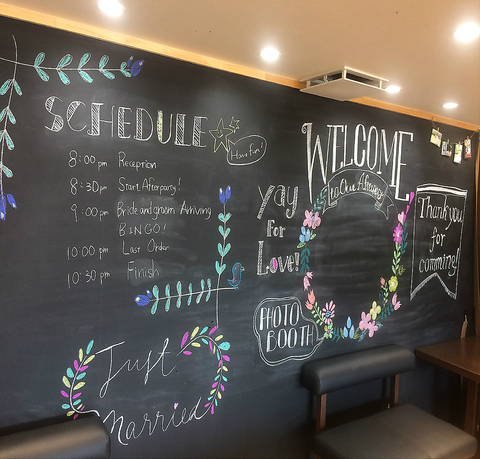 SCHEDULE
Have fun!
8:00 pm Reception
8:30 pm Start Afterparty!
9:00 pm Bride and groom Arriving
BINGO!
10:00 pm Last Order
10:30 pm Finish
Just
Married
WELCOME
Afterparty
YAY
FOR
LOVE!
PHOTO
BOOTH
Thank you
for
comming!